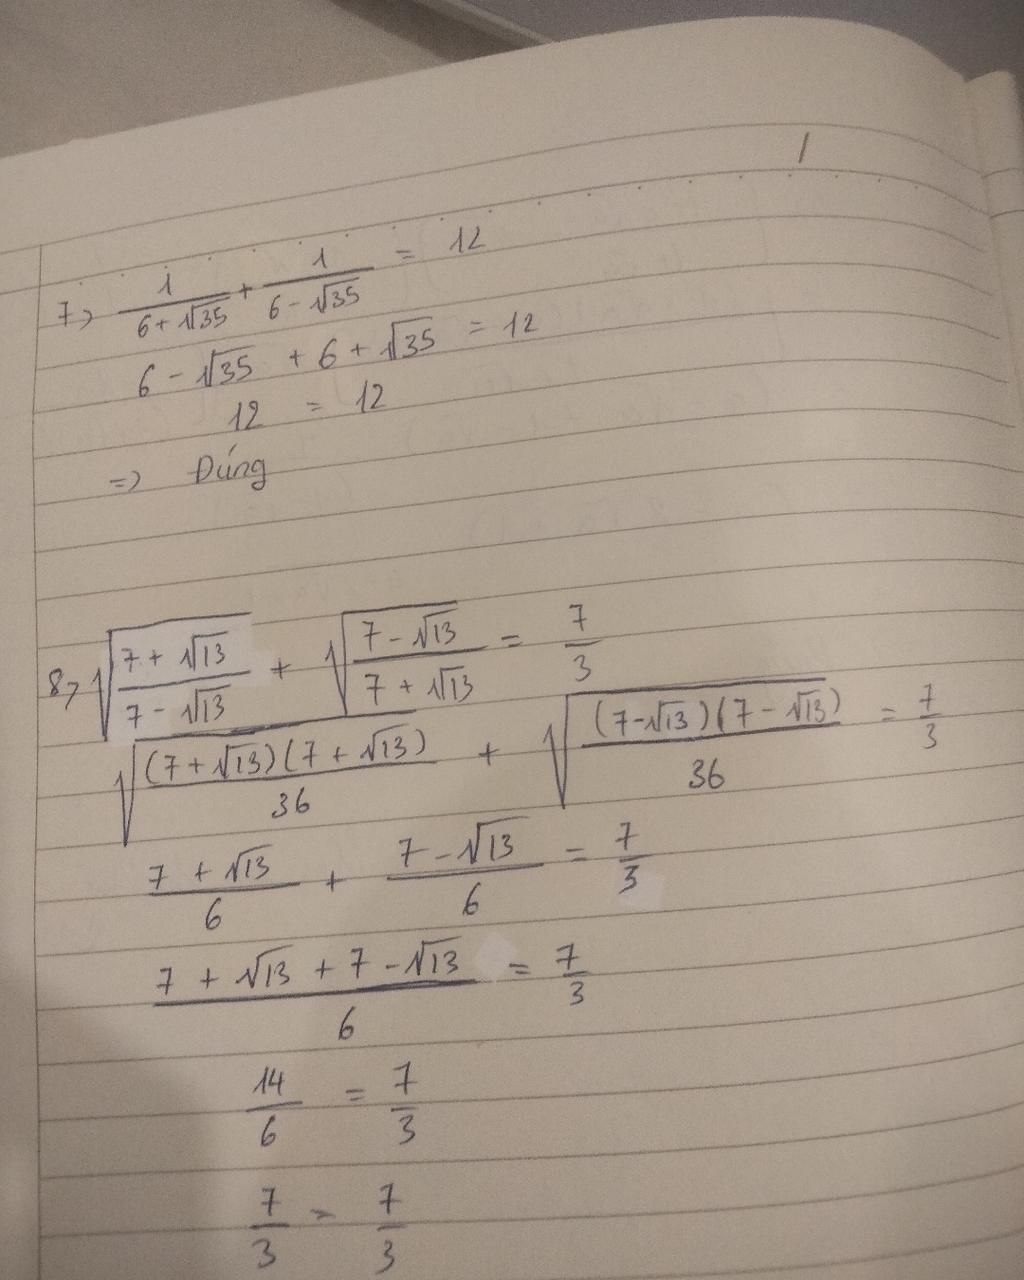 7> 1/(6 + √35) + 1/(6 - √35) = 12
6 - √35 + 6 + √35 = 12
12 = 12
=> Đúng
8> √((7 + √13)/(7 - √13)) + √((7 - √13)/(7 + √13)) = 7/3
√((7 + √13)(7 + √13)/36) + √((7 - √13)(7 - √13)/36) = 7/3
(7 + √13)/6 + (7 - √13)/6 = 7/3
(7 + √13 + 7 - √13)/6 = 7/3
14/6 = 7/3
7/3 = 7/3